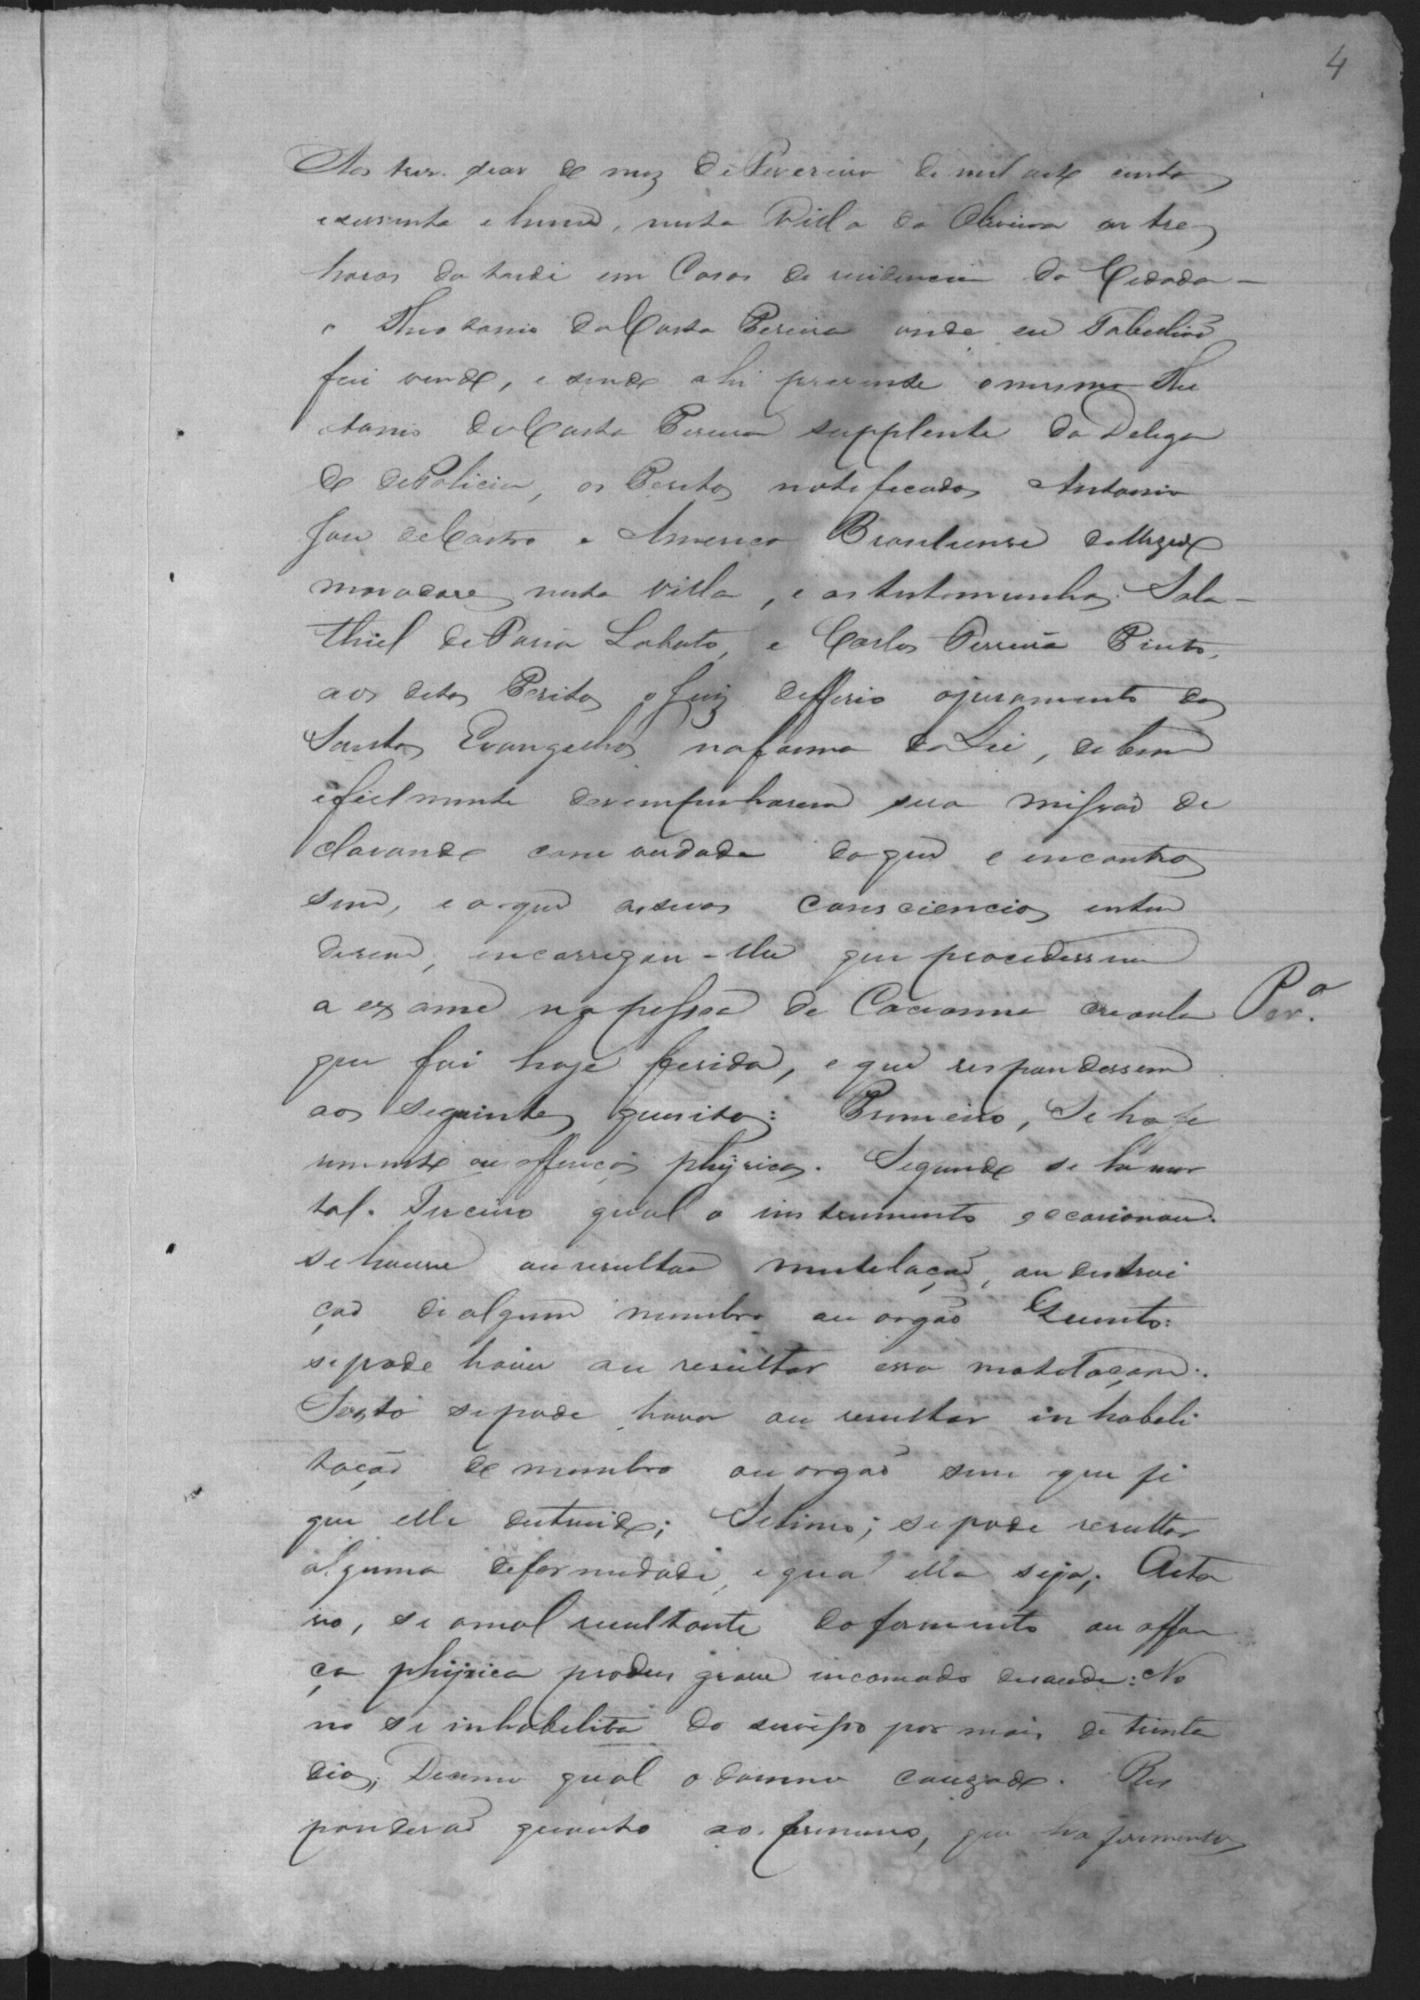 4
Aos trez dias do mez de Fevereiro de mil oito centos
e sessenta e hum, nesta Villa da Oliveira as tres
horas da tarde em Casas de residencia do Cidada-
o Theotonio da Costa Pereira onde eu Tabeliaõ
fui vindo, e sendo ahi prezente o mesmo Theo
tonio da Costa Pereira supplente do Delega
do de Policia, os Peritos notificados Antonio
José de Castro e America Brasiliense
moradores nesta villa, e as testemunhas Sala-
thiel de Paiva Lobato, e Carlos Ferreira Pinto,
aos ditos Peritos o Juiz defferio o juramento dos
Santos Evangelhos na forma da Lei, de bem
e fielmente desempenharem sua missaõ de
clarando com verdade do que e encontras
sem, e o que as suas consciencias enten
derem, encarregou-lhe que procedessem
a exame na pessoa de Crioula
Per.o
que foi hoje ferida, e que respondessem
aos seguintes quesitos: Primeiro, Se ha fe
rimento ou offenças physicas. Segundo se he mor
tal. Terceiro qual o instrumento occasionou.
se houve ou resultou mutelaçaõ, ou destrui
çaõ de algum membro ou orgaõ Quinto:
se pode haver ou resultar essa mutelaçam.
Sexto se pode haver ou resultar inhabeli
taçaõ de membro ou orgaõ sem que fi
que elle destruido; Setimo; se pode resultar
alguma deformidade, e qual ella seja; Oita
vo, se o mal resultante do ferimento ou offen
ça physica produs grave incomodo de saude: No
no se inhabelita do servisso por mais de trinta
dias; Decimo qual o damno cauzado. Res
ponderaõ quanto ao primeiro, que ha ferimentos